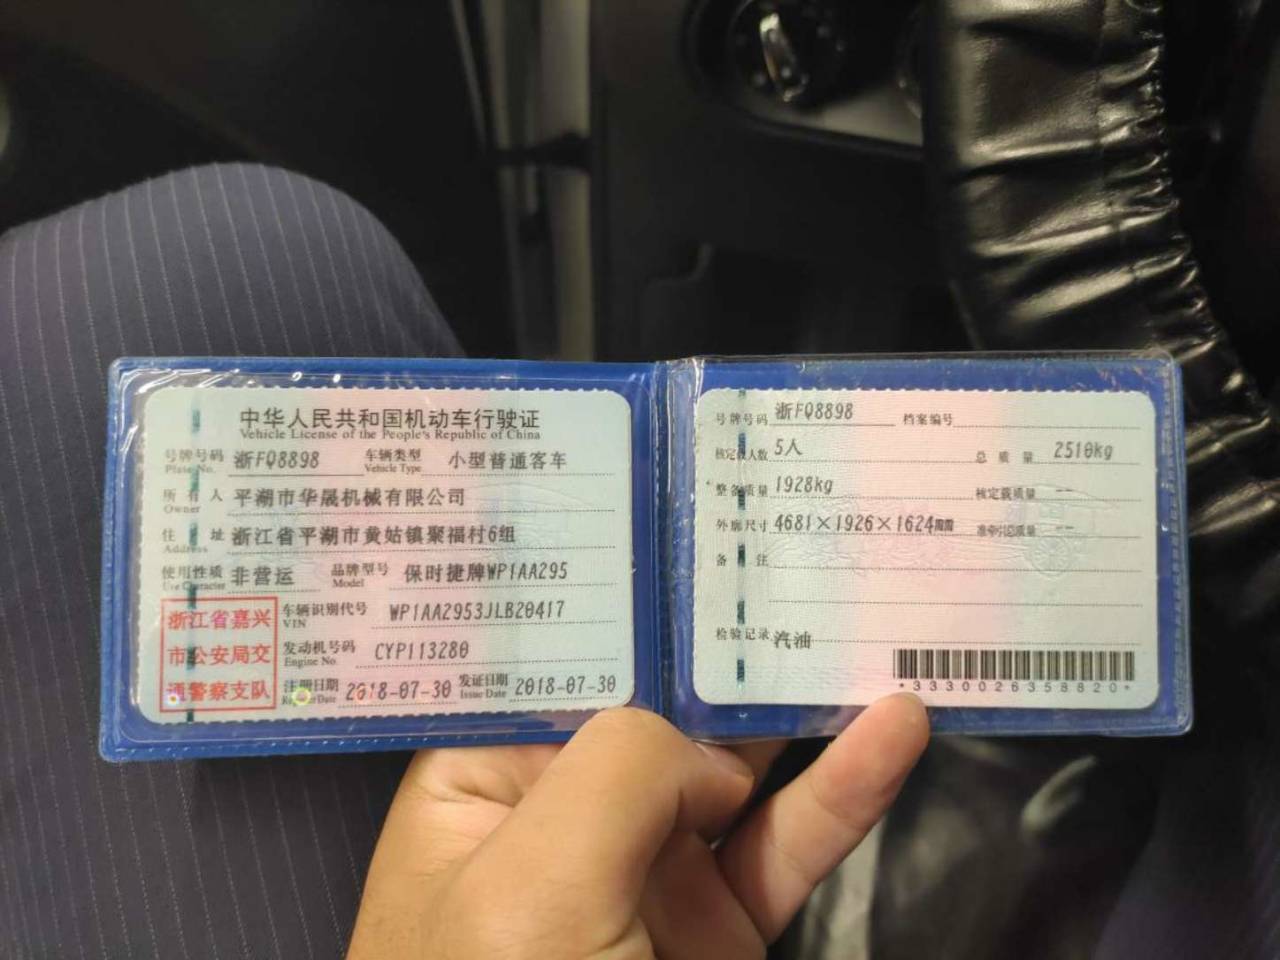 中华人民共和国机动车行驶证
Vehicle License of the People's Republic of China
号牌号码 浙FQ8898 车辆类型 小型普通客车
Plate No. Vehicle Type
所有人 平湖市华晟机械有限公司
Owner
住址 浙江省平湖市黄姑镇聚福村6组
Address
使用性质 非营运 品牌型号 保时捷牌WP1AA295
Use Character Model
浙江省嘉兴
市公安局交
通警察支队
车辆识别代号 WP1AA2953JLB20417
VIN
发动机号码 CYP113280
Engine No.
注册日期 2018-07-30 发证日期 2018-07-30
Register Date Issue Date
号牌号码 浙FQ8898 档案编号
核定载人数 5人 总质量 2510kg
整备质量 1928kg 核定载质量 --
外廓尺寸 4681×1926×1624mm 准牵引总质量 --
备注
检验记录 汽油
*3330026358820*